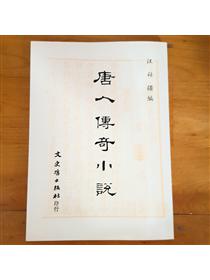 汪辟疆編
唐人傳奇小說
文史哲出版社印行